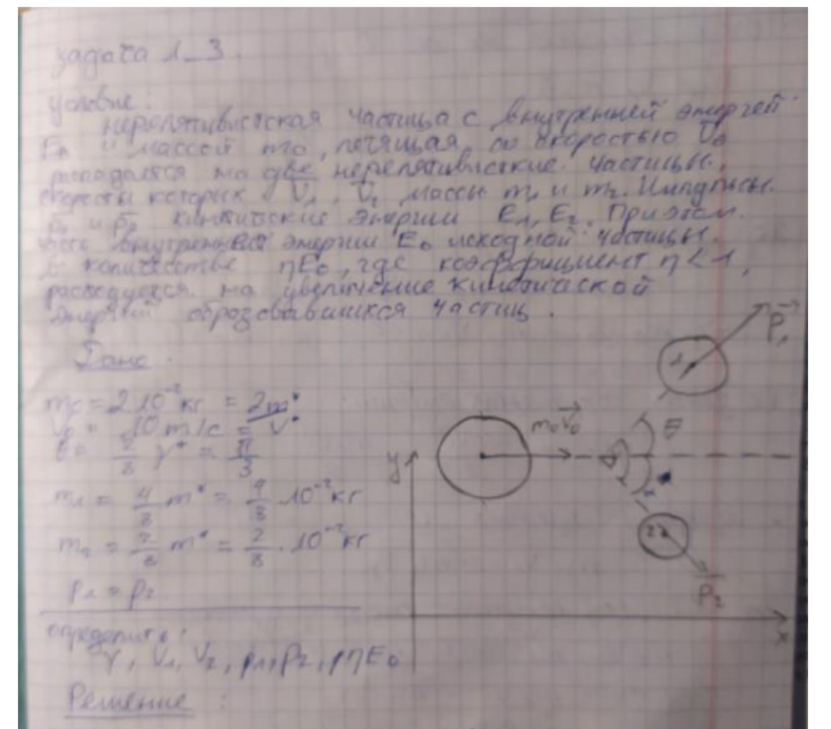 задача 1_3.
условие:
нерелятивистская частица с внутренней энергей
E₀ и массой m₀, летящая со скоростью V₀
распадается на две нерелятивисткие частицы,
скорости которых V₁, V₂ массы m₁ и m₂. Импульсы
p₁ и p₂ кинтические энергии E₁, E₂. При этом
часть внутренней энергии E₀ исходной частицы
в количестве ηE₀, где коэффициент η < 1,
расходуется на увеличение кинетической
энергий образовавшихся частиц.
Дано
m₀ = 2 10⁻² кг = 2m*
V₀ = 10 м/с = V*
γ* = π/3
m₁ = m* = · 10⁻² кг
m₂ = m* = · 10⁻² кг
p₁ = p₂
определить:
γ, V₁, V₂, p₁, p₂, ηE₀
Решение :
1
p₁
m₀V₀
θ
y
2
p₂
x